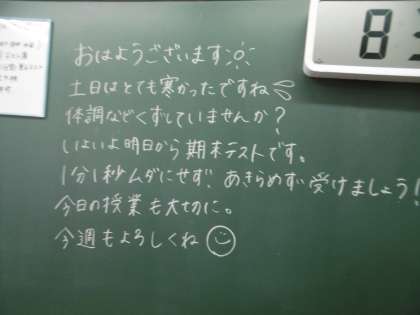 おはようございます
土日はとても寒かったですね
体調などくずしていませんか?
いよいよ明日から期末テストです。
1分1秒ムダにせず あきらめず 受けましょう!
今日の授業も大切に。
今週もよろしくね
83